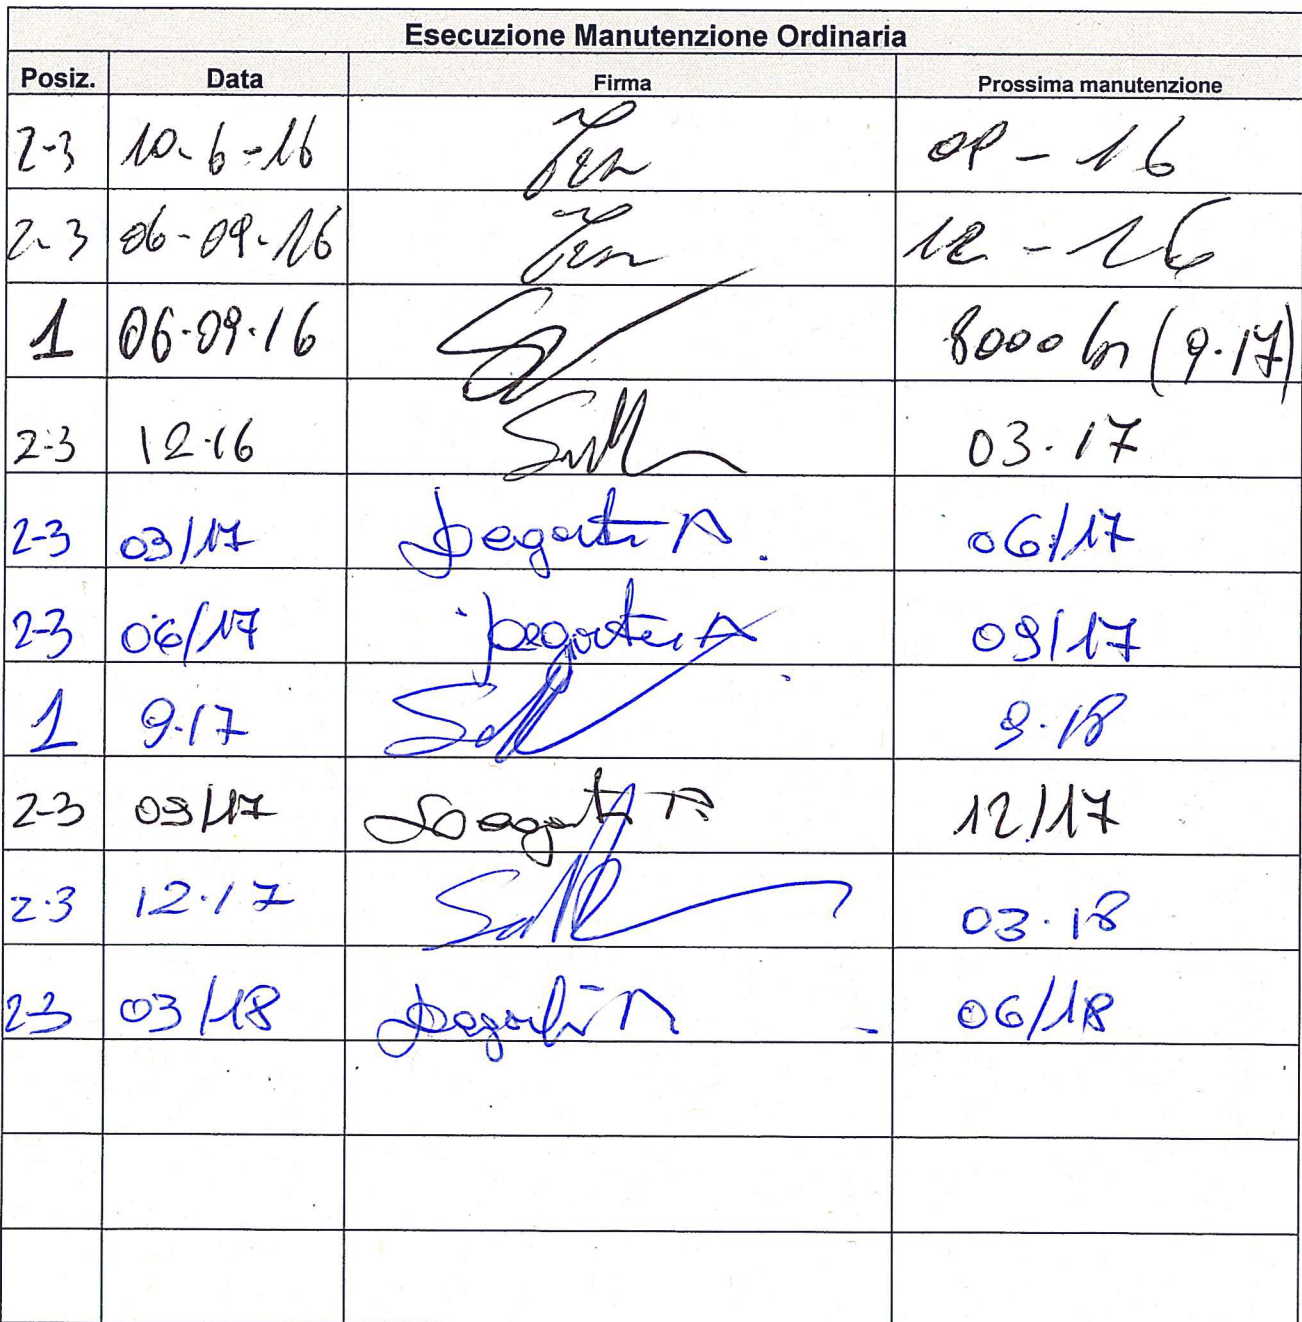 Esecuzione Manutenzione Ordinaria
Posiz. Data Firma Prossima manutenzione
2-3 10-6-16 09-16
2-3 06-09-16 12-16
1 06.09.16 8000 hr (9.17)
2-3 12.16 03.17
2-3 03/17 06/17
2-3 06/17 09/17
1 9.17 9.18
2-3 09/17 12/17
2-3 12.17 03.18
2-3 03/18 06/18